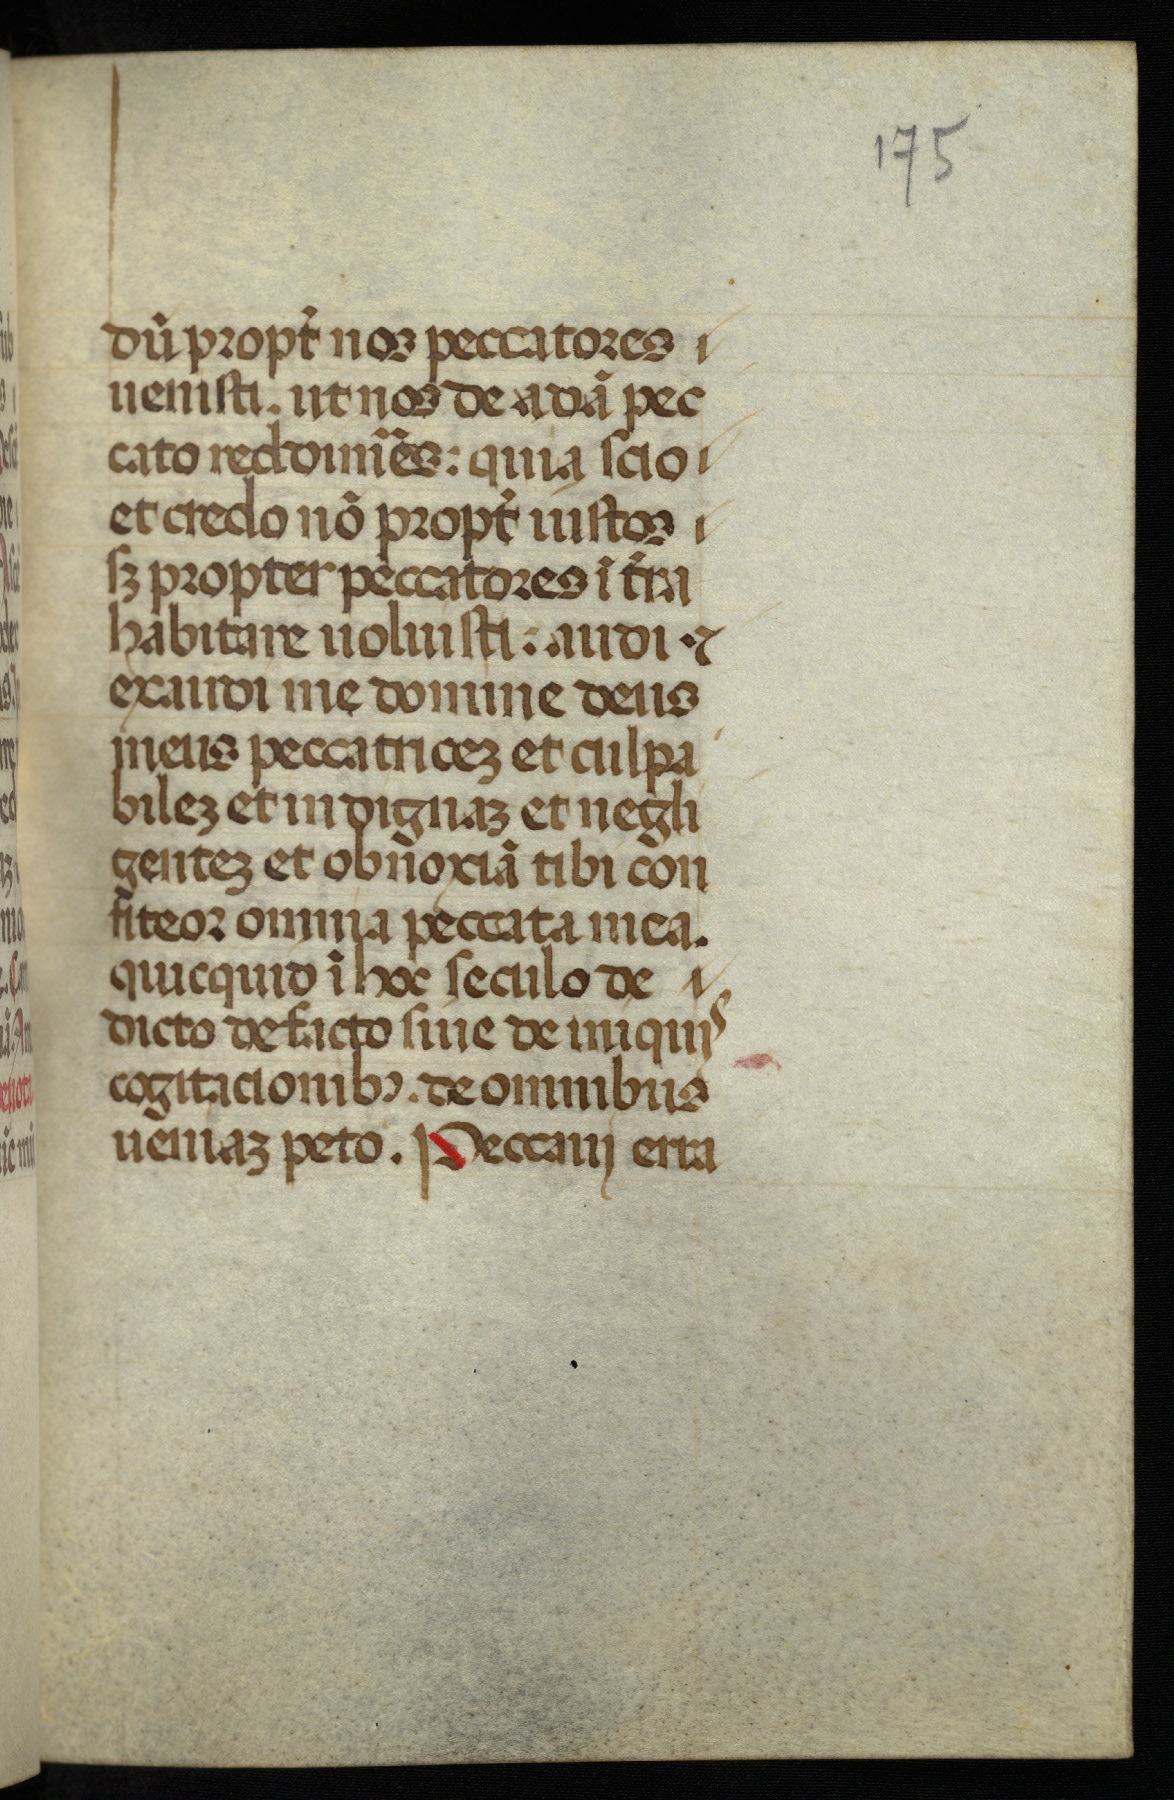 175
dū propt̛ nos peccatores
uenisti. ut nos de adā pec
cato redimēs: quia scio
et credo nō propt̛ iustos
sꝫ propter peccatores ī t̄ra
habitare uoluisti: audi ⁊
exaudi me domine deus
meus peccatriceꝫ et culpa
bileꝫ et indignaꝫ et negli
genteꝫ et obnoxiā tibi con
fiteor omnia peccata mea.
quicquid ī hoc seculo de
dicto de facto siue de iniquis
cogitacionibꝰ. de omnibus
ueniaꝫ peto. Peccaui erra